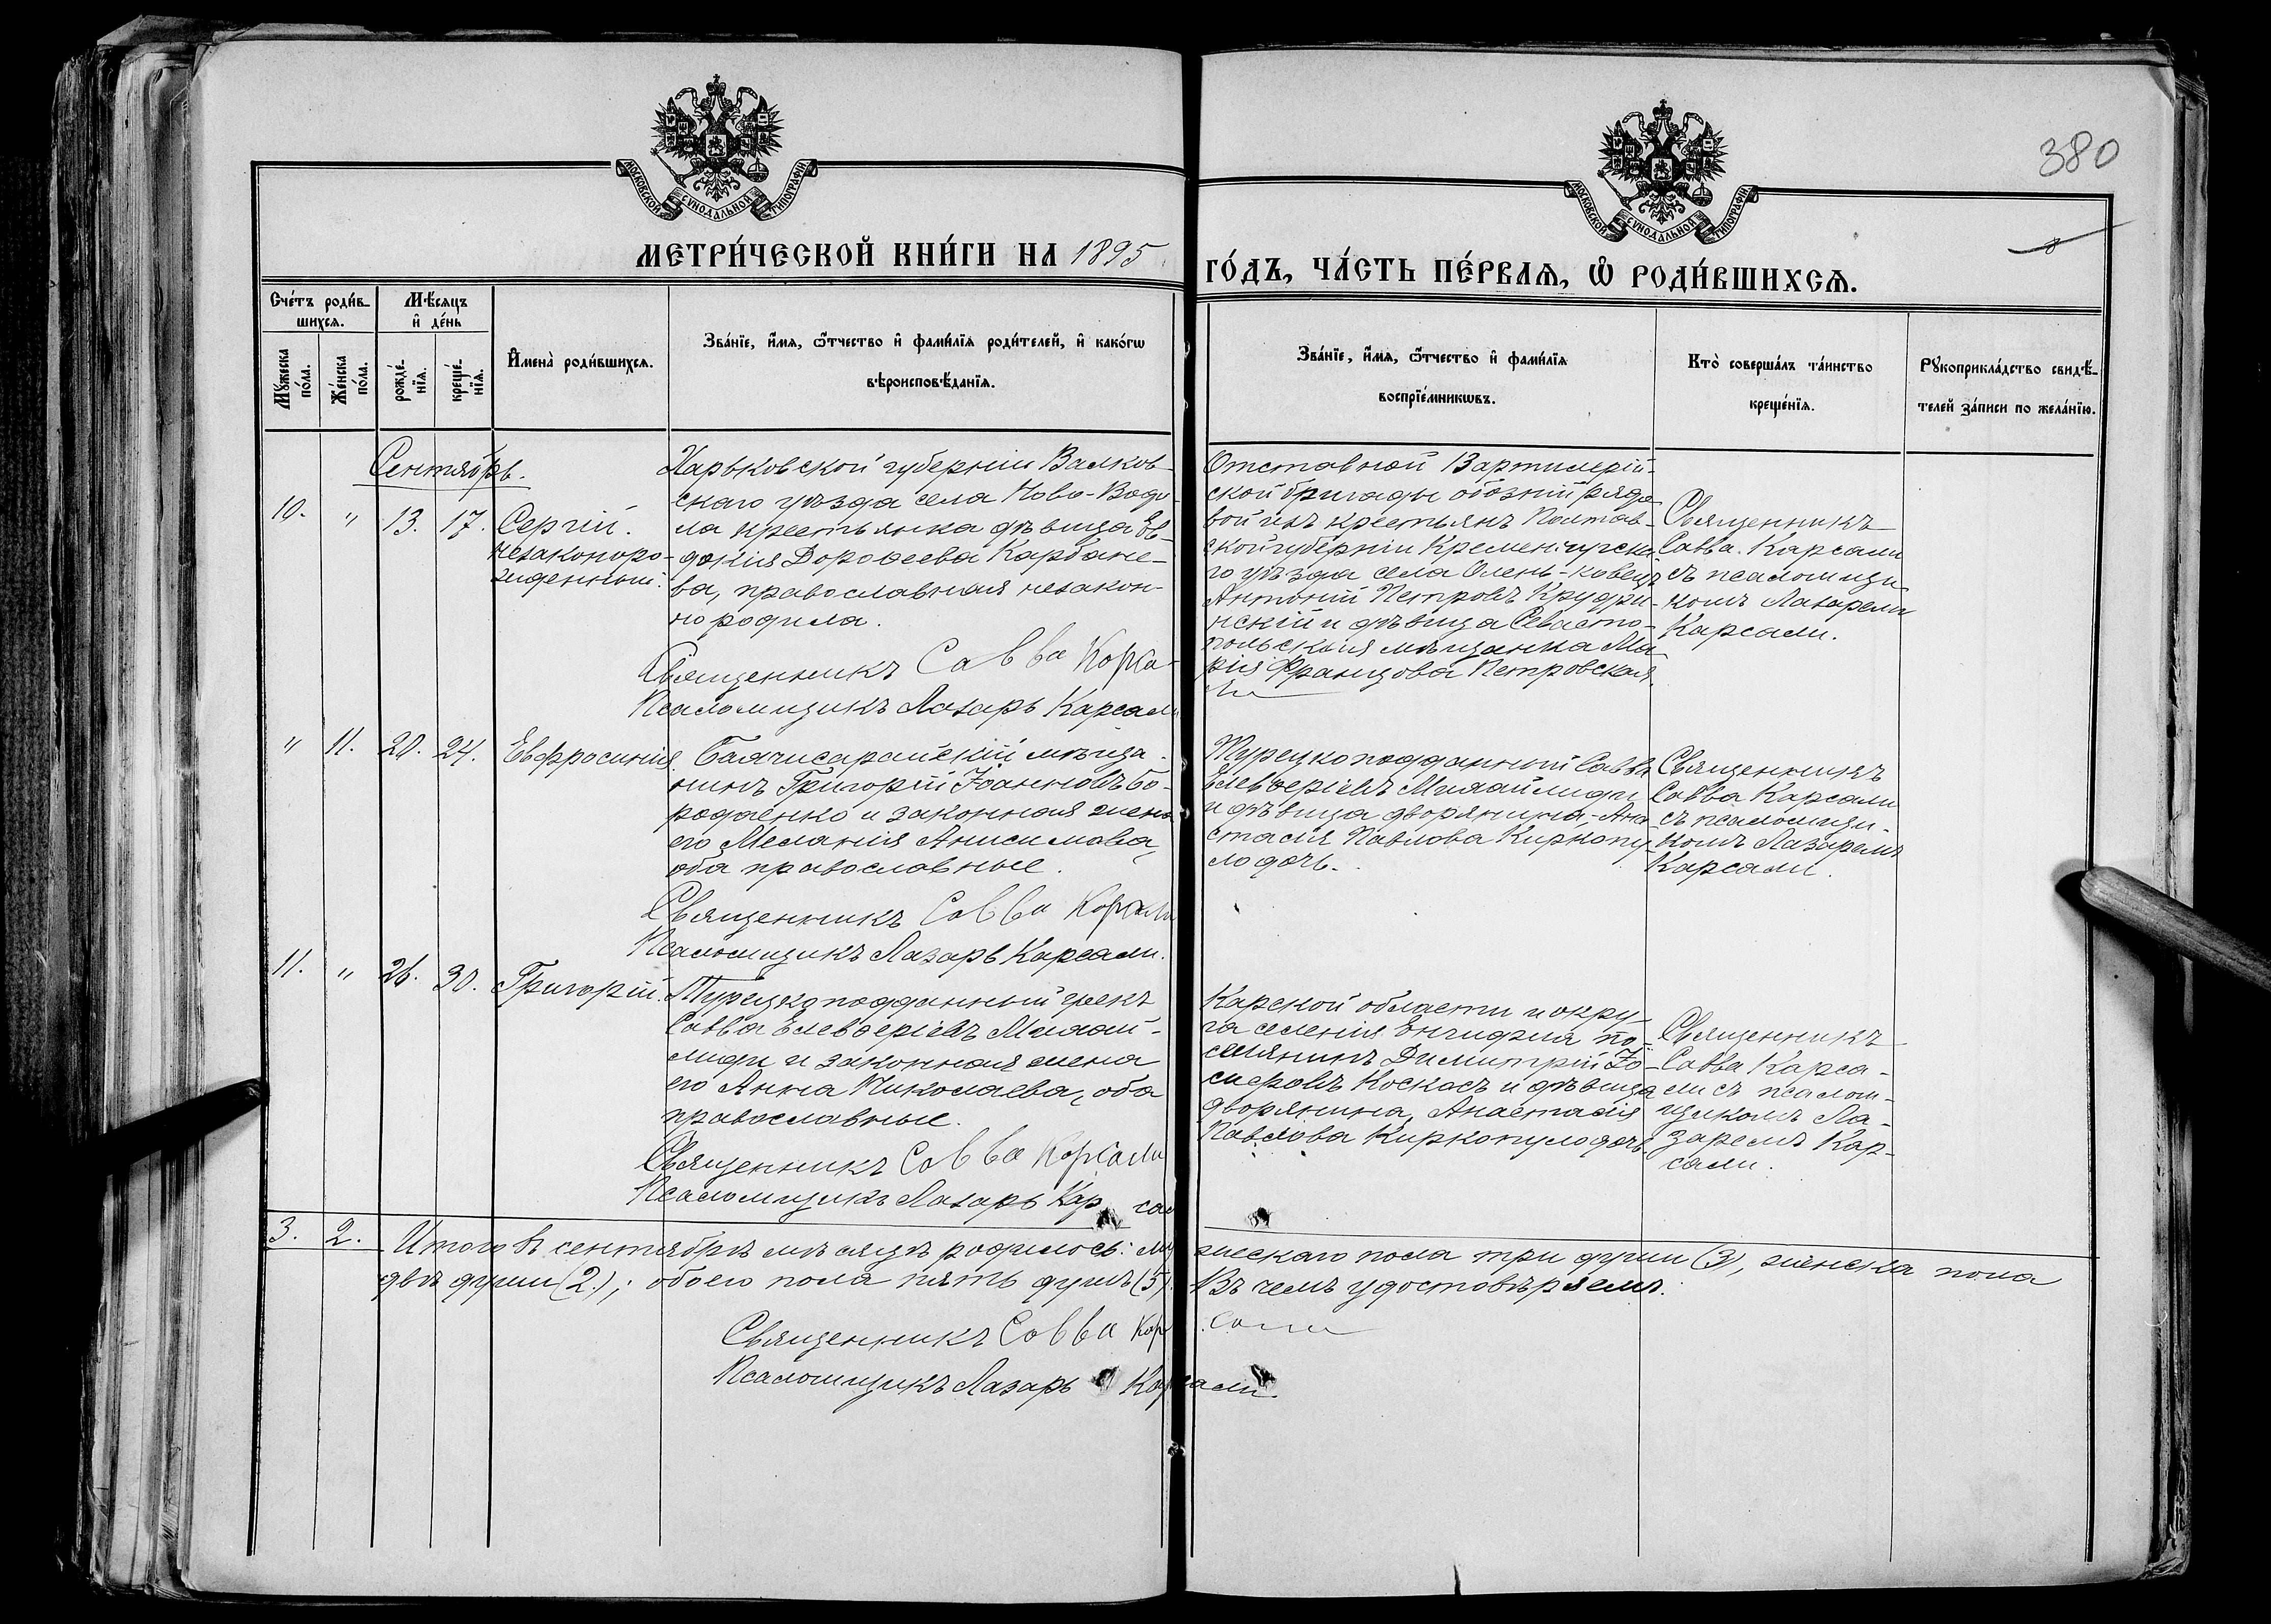 380
МОСКОВСКОЙ СѴНОДАЛЬНОЙ ТИПОГРАФІИ
МОСКОВСКОЙ СѴНОДАЛЬНОЙ ТИПОГРАФІИ
МЕТРИ́ЧЕСКОЙ КНИ́ГИ НА 1895
ГО́ДЪ, ЧА́СТЬ ПЕ́РВАѦ, Ѽ РОДИ́ВШИХСѦ.
Счéтъ роди́в-
шихсѧ.
Мꙋ́жеска по́ла.
Же́нска по́ла.
Мѣ́сяцъ
и҆ де́нь
рожде́-
нїѧ.
креще́-
нїѧ.
И҆мена̀ роди́вшихсѧ.
Зва́нїе, и҆́мѧ, ѻ҆́тчество и҆ фами́лїѧ роди́телей, и҆ како́гѡ
вѣроисповѣ́данїѧ.
Зва́нїе, и҆́мѧ, ѻ҆́тчество и҆ фами́лїѧ
воспрїе́мникѡвъ.
Кто̀ соверша́лъ та́инство
креще́нїѧ.
Рꙋкоприкла́дство свидѣ́-
телей за́писи по жела́нїю.
Сентябрь.
10. " 13. 17. Сергій.
незаконоро-
жденный.
Харьковской губерніи Валков-
скаго уѣзда села Ново-Водо-
ла крестьянка дѣвица Ев-
докія Дороѳеева Карбане-
ва, православная незакон-
но родила.
Священникъ Савва Карса-
Псаломщикъ Лазарь Карсали
Отставной 13 артиллерій-
ской бригады обозній рядо-
вой изъ крестьянъ Полтав-
ской губерніи Кременчугска-
го уѣзда села
Антоній Петровъ
и дѣвица Севасто-
польская мѣщанка Ма-
рія Францова Петровская.
ли
Священникъ
Савва Карсали
съ псаломщи-
комъ Лазаремъ
Карсали.
" 11. 20. 24. Евфросинія.
Бахчисарайскій мѣща-
нинъ Григорій Іоанновъ Бо-
роденко и законная жена
его Меланія Анисимова,
оба православные.
Священникъ Савва Карсали
Псаломщикъ Лазарь Карсали.
Турецкоподданный Савва
Елевѳеріевъ
и дѣвица дворянина, Ана-
стасія Павлова Киркопу-
лодочь.
Священникъ
Савва Карсали
съ псаломщи-
комъ Лазаремъ
Карсали.
11. " 26. 30. Григорій.
Турецкоподданный грекъ
Савва Елевѳеріевъ
и законная жена
его Анна Николаева, оба
православные.
Священникъ Савва Карсали
Псаломщикъ Лазарь Кар сал
Карской области и окру-
га селенія по-
селянинъ Димитрій
и дѣвица
дворянина, Анастасія
Павлова Киркопулодочь.
Священникъ
Савва Карса-
ли съ псалом-
щикомъ Ла-
заремъ Кар-
сали.
3. 2. Итого въ сентябрѣ мѣсяцѣ родилось: мужескаго пола три души (3), женска пола
двѣ души (2); обоего пола пять душъ (5). Въ чемъ удостовѣряемъ:
Священникъ Савва Карсали
Псаломщикъ Лазарь Карсали.